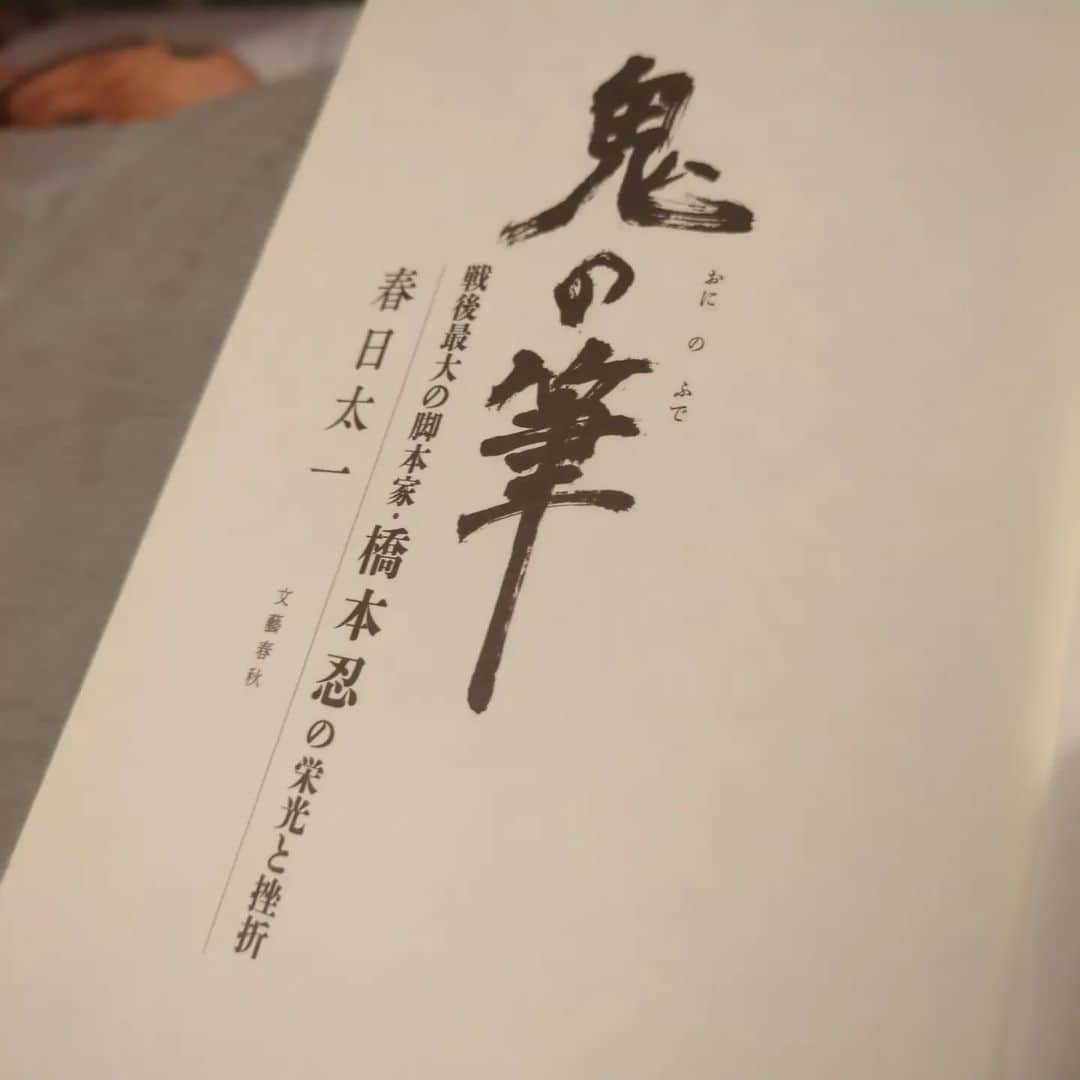 鬼の筆
おにのふで
戦後最大の脚本家・橋本忍の栄光と挫折
春日太一
文藝春秋